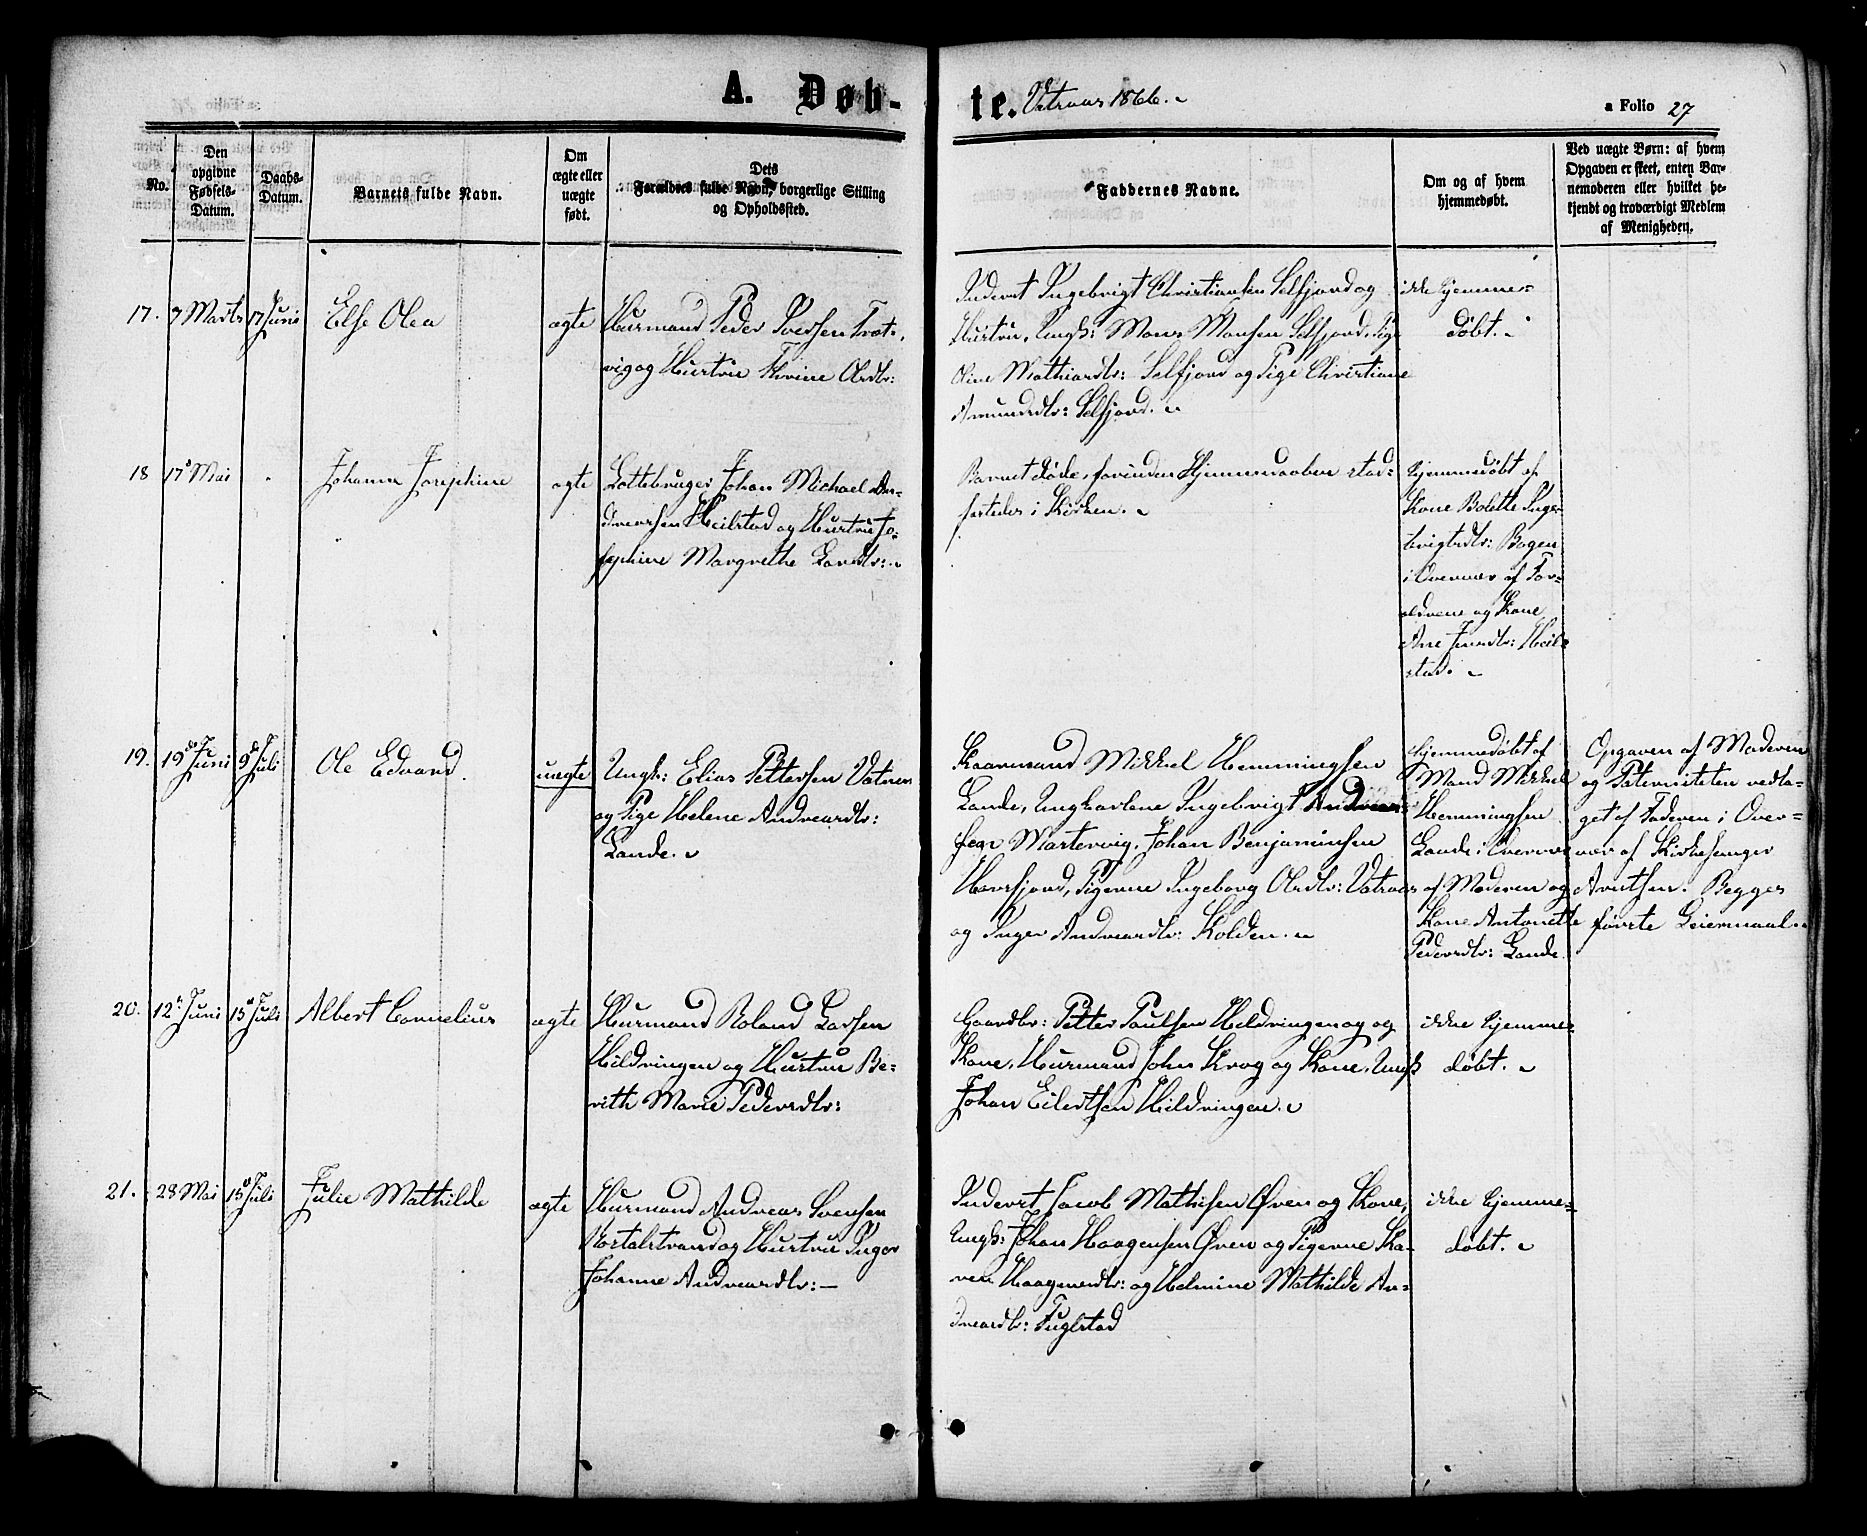 A. Døb-
te. Vatvaas 1866.
a Folio 27
No.
Den
opgivne
Fødsels-
Datum.
Daabs-
Datum.
Barnets fulde Navn.
Om
ægte eller
uægte
født.
Dets
Forældres fulde Navn, borgerlige Stilling
og Opholdssted.
Faddernes Navne.
Om og af hvem
hjemmedøbt.
Ved uægte Børn: af hvem
Opgaven er skeet, enten Bar-
nemoderen eller hvilket be-
kjendt og troværdigt Medlem
af Menigheden.
17.
7 Marts
17 Juni
Else Olea
ægte
Huusmand Peder Sverssen
vig og Hustru Olsdtr:
Inderst Ingebrigt Christiansen Selfjord og
Hustru, Ungk: Mons Monsen Selfjord, Pige
Oline Mathiasdtr: Selfjord og Pige Christiane
Amundsdtr: Selfjord.
ikke hjemme-
døbt.
18
17 Mai
Johanna Josephine
ægte
Lottebruger Johan Michael An-
dreassen Heilstad og Hustru Jo-
sephine Margrethe Larsdtr:
Barnet døde, forinden Hjemmedaaben stad-
festedes i Kirken.
hjemmedøbt af
Kone Bolette Inge-
brigtsdtr: Bogen
i Overvær af For-
ældrene og Kone
Ane Jensdtr: Heil-
stad.
19.
19de Juni
9de Juli
Ole Edvard.
uægte
Ungk: Elias Pettersen Vatvaas
og Pige Helene Andreasdtr:
Lande.
Kaarmand Mikkel Hemmingsen
Lande, Ungkarlene Ingebrigt Andreas-
sen Mastervig, Johan Benjaminsen
Havsfjord, Pigerne Ingeborg Olsdtr: Vatvaas
og Inger Andreasdtr: Kolden.
hjemmedøbt af
Mand Mikkel
Hemmingsen
Lande i Overvær
af Moderen og
Kone Antonette
Pedersdtr: Lande.
Opgaven af Moderen
og Paterniteten vedta-
get af Faderen i Over-
vær af Kirkesanger
Arntsen. Begges
første Leiermaal.
20.
12 Juni
15 Juli
Albert Cornelius
ægte
Huusmand Roland Larsen
Hildringen og Hustru Be-
rith Marie Pedersdtr:
Gaardbr: Petter Paulsen Hildringen og og
Kone, Huusmand John Krog og Kone, Ungk
Johan Eilertsen Hildringen.
ikke hjemme-
døbt.
21.
28 Mai
15 Juli
Julie Mathilde
ægte
Huusmand Andreas Svensen
og Hustru Inger
Johanne Andreasdtr:
Inderst Jacob Mathisen Øren og Kone,
Ungk: Johan Haagensen Øren og Pigerne Ka-
ren Haagensdtr: og Helmine Mathilde An-
dreasdtr: Fuglstad
ikke hjemme-
døbt.